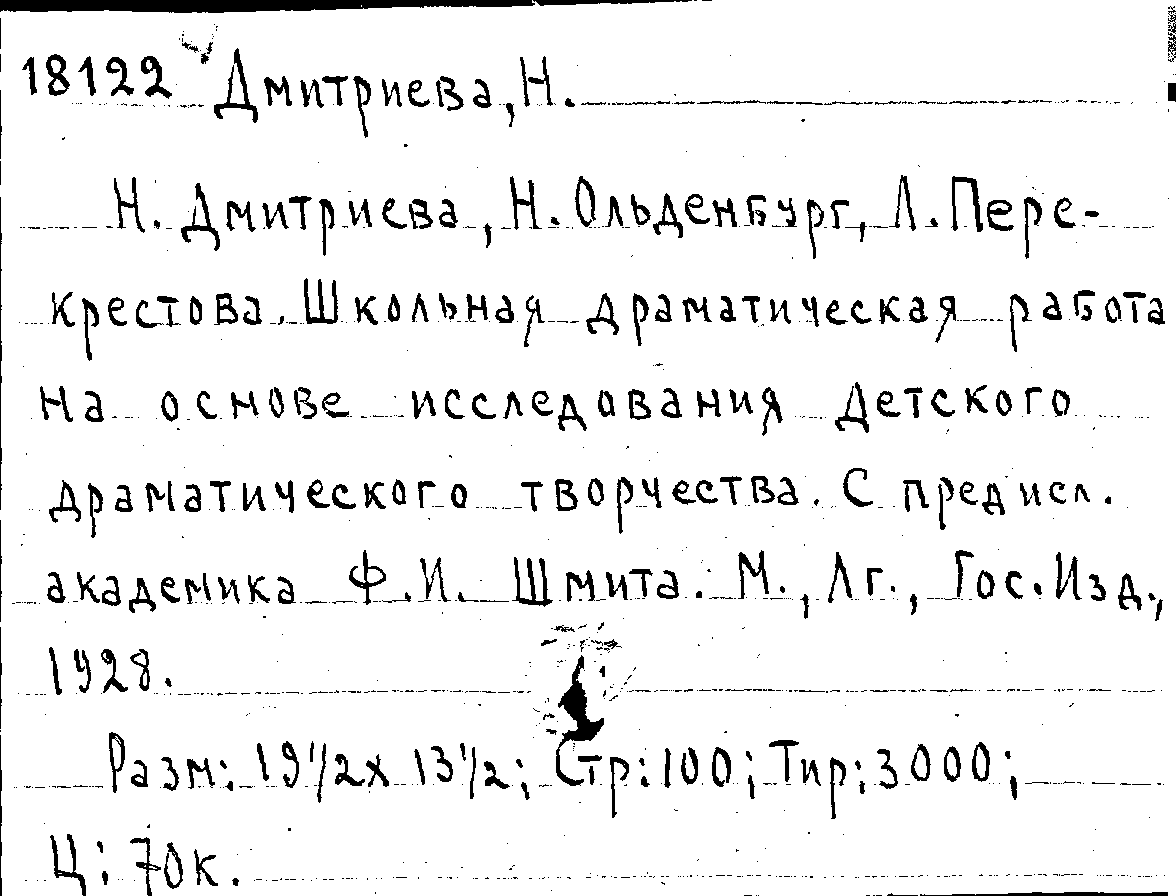 18122 Дмитриева, Н.
Н. Дмитриева, Н. Ольденбург, Л. Пере-
крестова. Школьная драматическая работа
на основе исследования детского
драматического творчества. С предисл.
академика Ф.И. Шмита. М., Лг., Гос. Изд.,
1928.
Разм: 19 1/2 х 13 1/2; Стр: 100; Тир: 3000;
Ц: 70к.